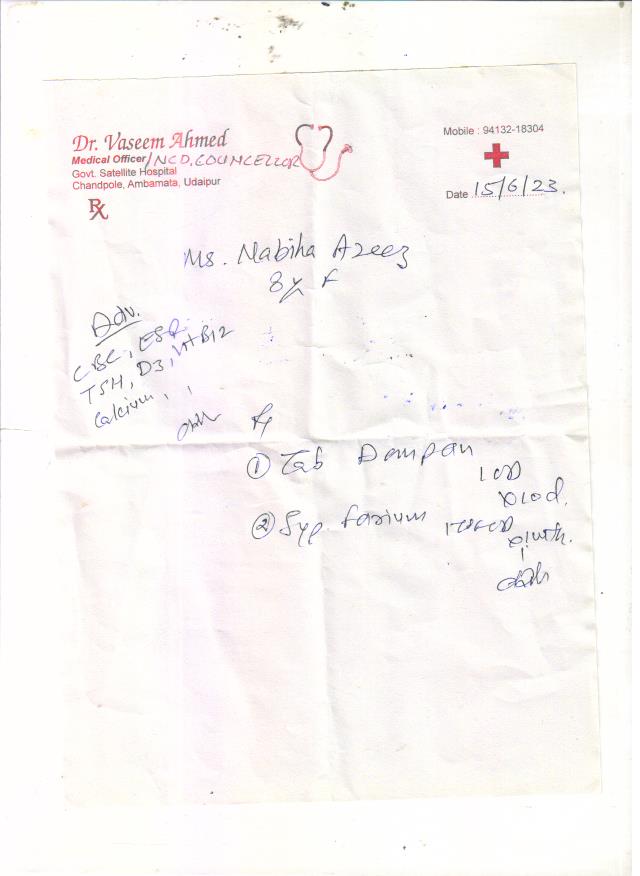 Dr. Vaseem Ahmed
Medical Officer/NCD, COUNCELLOR
Govt. Satellite Hospital
Chandpole, Ambamata, Udaipur
Rx
Mobile : 94132-18304
Date 15/6/23.
Ms. Nabiha Azeez
8y F
Adv.
CBC, ESR
TSH, D3, Vit B12
Calcium, ,
Rx
① Tab Dompan
1 OD
x10d.
② Syp.
x1mth.